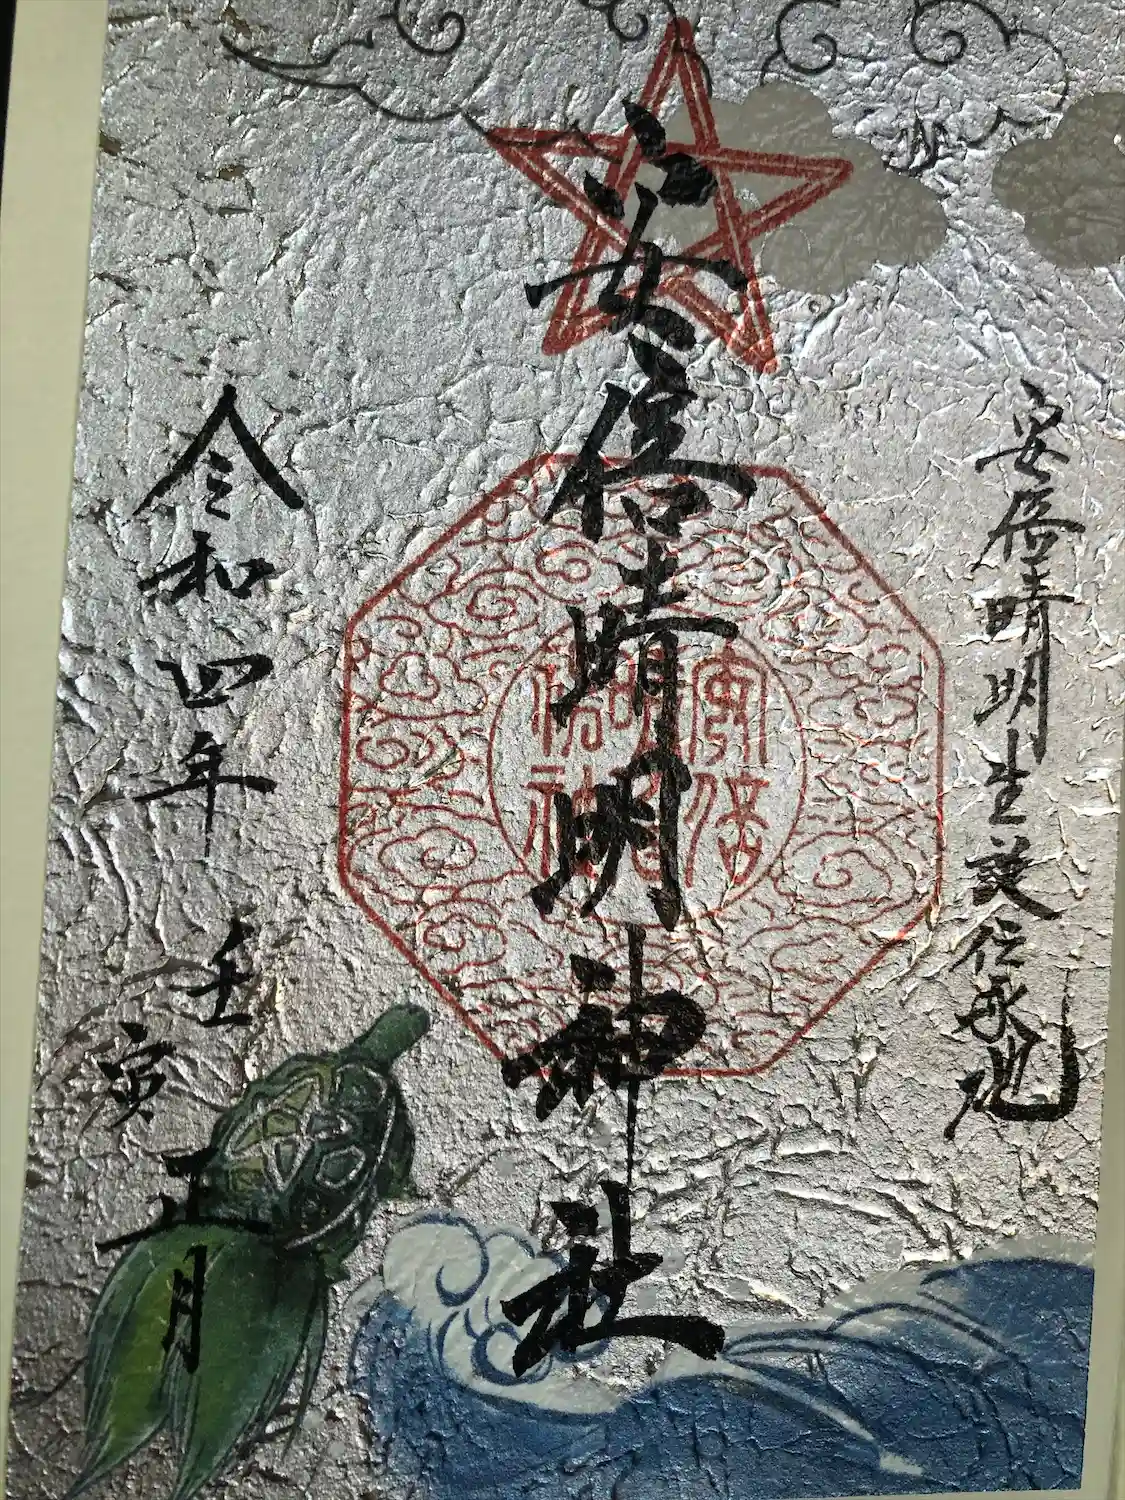 安倍晴明生誕伝承地
安倍晴明神社
安倍
晴明
神社
令和四年 壬寅 正月